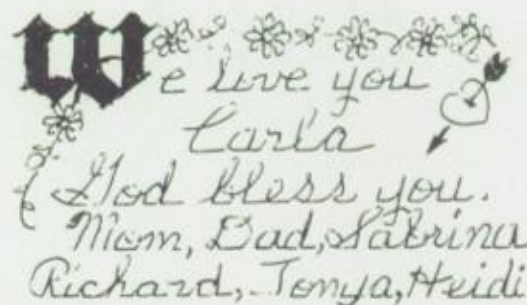 We love you
Carla
God bless you.
Mom, Dad, Sabrina
Richard, Tonya, Heidi